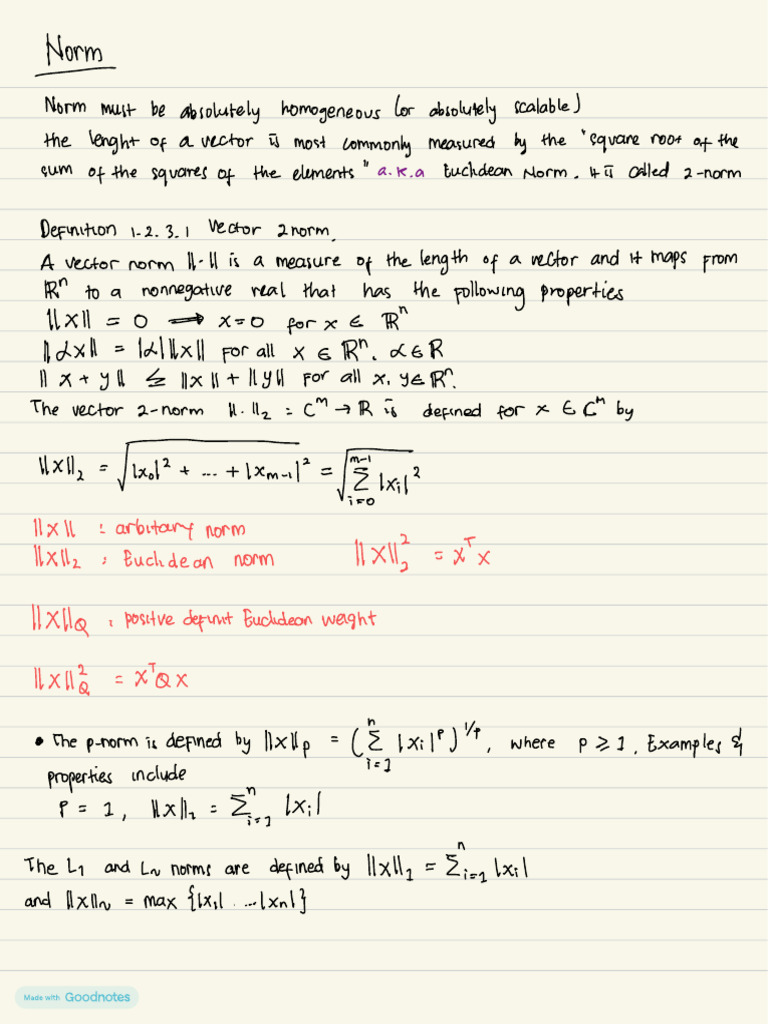 Norm
Norm must be absolutely homogeneous (or absolutely scalable)
the lenght of a vector is most commonly measured by the "square root of the
sum of the squares of the elements" a.k.a Euclidean Norm. It is called 2-norm
Definition 1.2.3.1 Vector 2norm.
A vector norm ||·|| is a measure of the length of a vector and it maps from
ℝⁿ to a nonnegative real that has the following properties
||x|| = 0 → x=0 for x ∈ ℝⁿ
||αx|| = |α| ||x|| for all x ∈ ℝⁿ, α∈ℝ
||x + y|| ≤ ||x|| + ||y|| for all x, y∈ℝⁿ.
The vector 2-norm ||·||₂ : ℂᵐ → ℝ is defined for x ∈ ℂᵐ by
||x||₂ = √(|x₀|² + ... + |xₘ₋₁|²) = √(∑_{i=0}^{m-1} |xᵢ|²)
||x|| : arbitary norm
||x||₂ : Euclidean norm ||x||₂² = xᵀx
||x||_Q : positive definit Euclidean weight
||x||_Q² = xᵀQx
• The p-norm is defined by ||x||ₚ = (∑_{i=1}^{n} |xᵢ|ᵖ)^{1/p}, where p ≥ 1. Examples &
properties include
P = 1, ||x||₁ = ∑_{i=1}^{n} |xᵢ|
The L₁ and L∞ norms are defined by ||x||₁ = ∑_{i=1}^{n} |xᵢ|
and ||x||∞ = max {|x₁| ... |xₙ|}
Made with Goodnotes